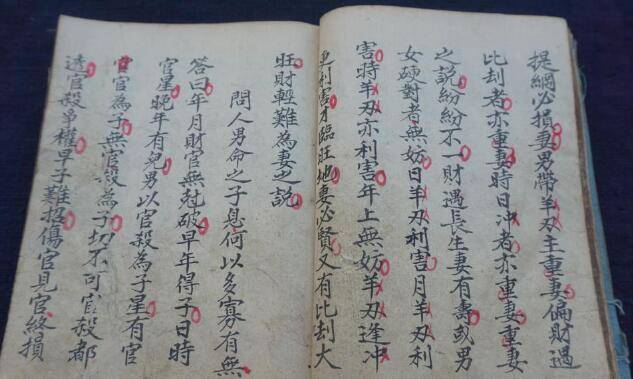 提綱必損妻男帶羊刃主重妻偏財遇
比刦者亦重妻時日冲者亦重妻重妻
之說紛紛不一財遇長生妻有壽或男
女硬對者無妨日羊刃利害月羊刃利
害時羊刃亦利害年上無妨羊刃逢冲
更利害才臨旺地妻必賢又有比刦大
旺財輕難為妻之說
問人男命之子息何以多寡有無
答曰年月財官無尅破早年得子日時
官星晚年有兒男以官殺為子星有官
官為子無官殺為子切不可官殺都
透官殺爭權早子難招傷官見官終損